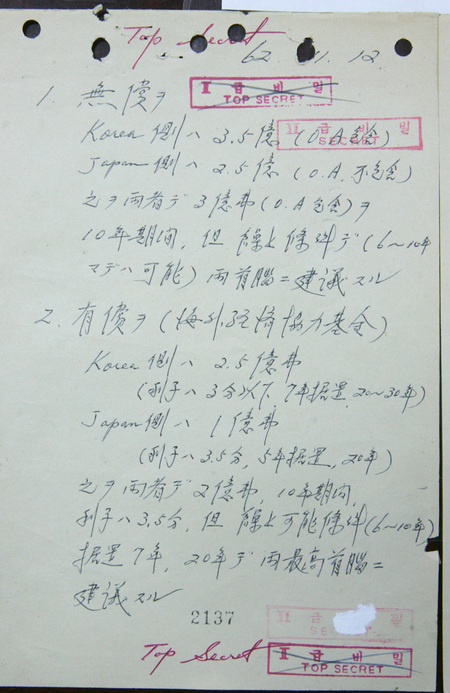 Top Secret
62. 11. 12
Ⅱ급비밀
TOP SECRET
1. 無償ヲ
Korea側ハ 3.5億 (O.A包含)
Ⅱ급비밀
SECRET
Japan側ハ 2.5億 (O.A.不包含)
之ヲ両者デ 3億弗 (O.A包含) ヲ
10年期間, 但 繰上條件デ (6〜10年
マデハ可能) 両首脳ニ建議スル
2. 有償ヲ (海外経済協力基金)
Korea側ハ 2.5億弗
(利子ハ3分以下, 7年据置, 20〜30年)
Japan側ハ 1億弗
(利子ハ3.5分, 5年据置, 20年)
之ヲ両者デ2億弗, 10年期間,
利子ハ3.5分, 但 繰上可能條件 (6〜10年)
据置7年, 20年デ両最高首脳ニ
建議スル
2137
Ⅱ급 밀
SE
Top Secret
Ⅱ급비밀
TOP SECRET